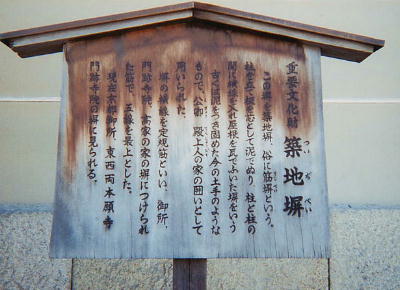 重要文化財 築地塀
ついぢべい
この塀を築地塀、俗に筋塀という。
柱を立て板を芯として泥でぬり 柱と柱の
間に横縁を入れ屋根を瓦でふいた塀をいう
古くは泥をつき固めた今の土手のような
もので、公卿、殿上人の家の囲いとして
用いられた。
塀の横縁を定規筋といい、御所、
門跡寺院、高家の家の塀につけられ
た筋で、五線を最上とした。
現在京都御所、東西両本願寺
門跡寺院の塀に見られる。